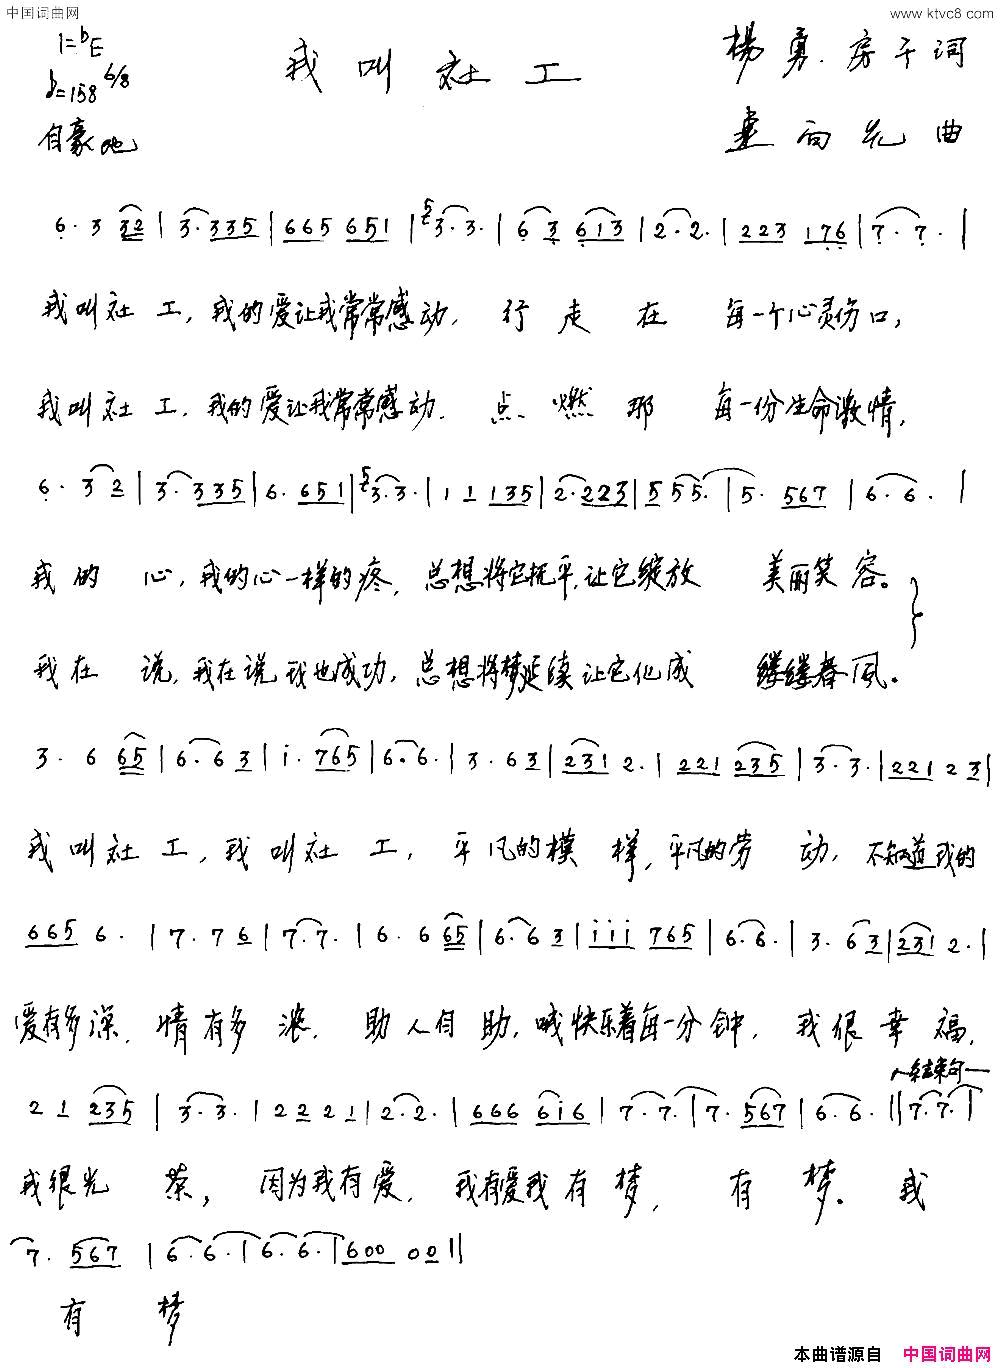 中国词曲网 www.ktvc8.com
1=bE 我叫社工 楊勇.房千词
♪=158 6/8
自豪地 曲
6. 3 32 | 3. 335 | 665 651 | 5 3. 3. | 6 3 613 | 2. 2. | 223 176 | 7. 7. |
我叫社工，我的爱让我常常感动，行走在每一个心灵伤口，
我叫社工，我的爱让我常常感动．点燃那每一份生命激情，
6. 3 2 | 3. 335 | 6. 651 | 5 3. 3. | 1 1 135 | 2. 223 | 5 5 5. | 5. 567 | 6. 6. |
我的心，我的心一样的疼，总想将它抚平，让它绽放美丽笑容。
我在说，我在说我也成功，总想将梦延续让它化成缕缕春风。
3. 6 65 | 6. 6 3 | i. 765 | 6. 6. | 3. 6 3 | 231 2. | 221 235 | 3. 3. | 221 2 3 |
我叫社工，我叫社工，平凡的模样，平凡的劳动，不知道我的
665 6. | 7. 7 6 | 7. 7. | 6. 6 65 | 6. 6 3 | iii 765 | 6. 6. | 3. 6 3 | 231 2. |
爱有多深，情有多浓．助人自助，喊快乐着每一分钟，我很幸福，
结束句
2 1 235 | 3. 3. | 2 2 2 1 | 2. 2. | 666 6i6 | 7. 7. | 7. 567 | 6. 6. || 7. 7. |
我很光荣，因为我有爱．我有爱我有梦，有梦。我
7. 567 | 6. 6. | 6. 6. | 600 00 ||
有梦
本曲谱源自 中国词曲网